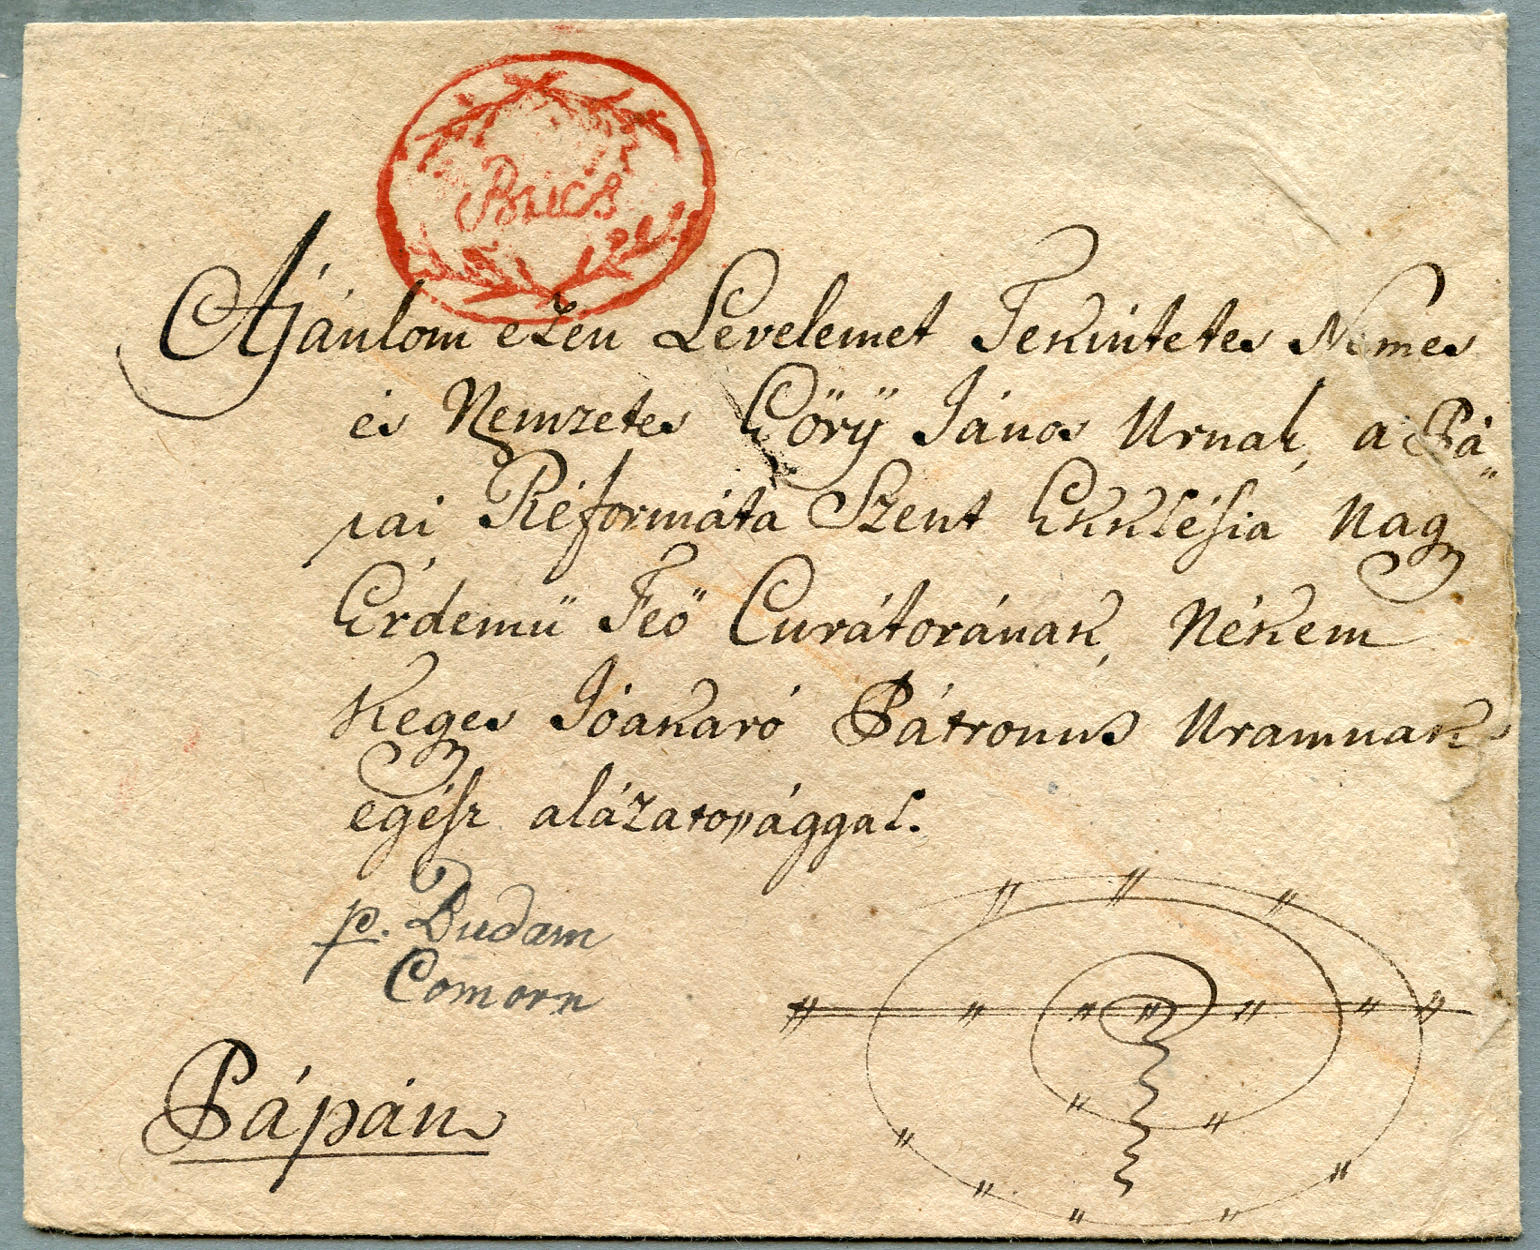 Bács
Ajánlom ezen Levelemet Tekintetes Nemes
és Nemzetes Göry János Urnak, a Pá„
pai Réformáta Szent Ekklésia Nagy
Érdemü Feö Curátorának, Nékem
Keges Jóakaró Pátronus Uramnak
egész alázatossággal.
p. Budam
Comorn
Pápán